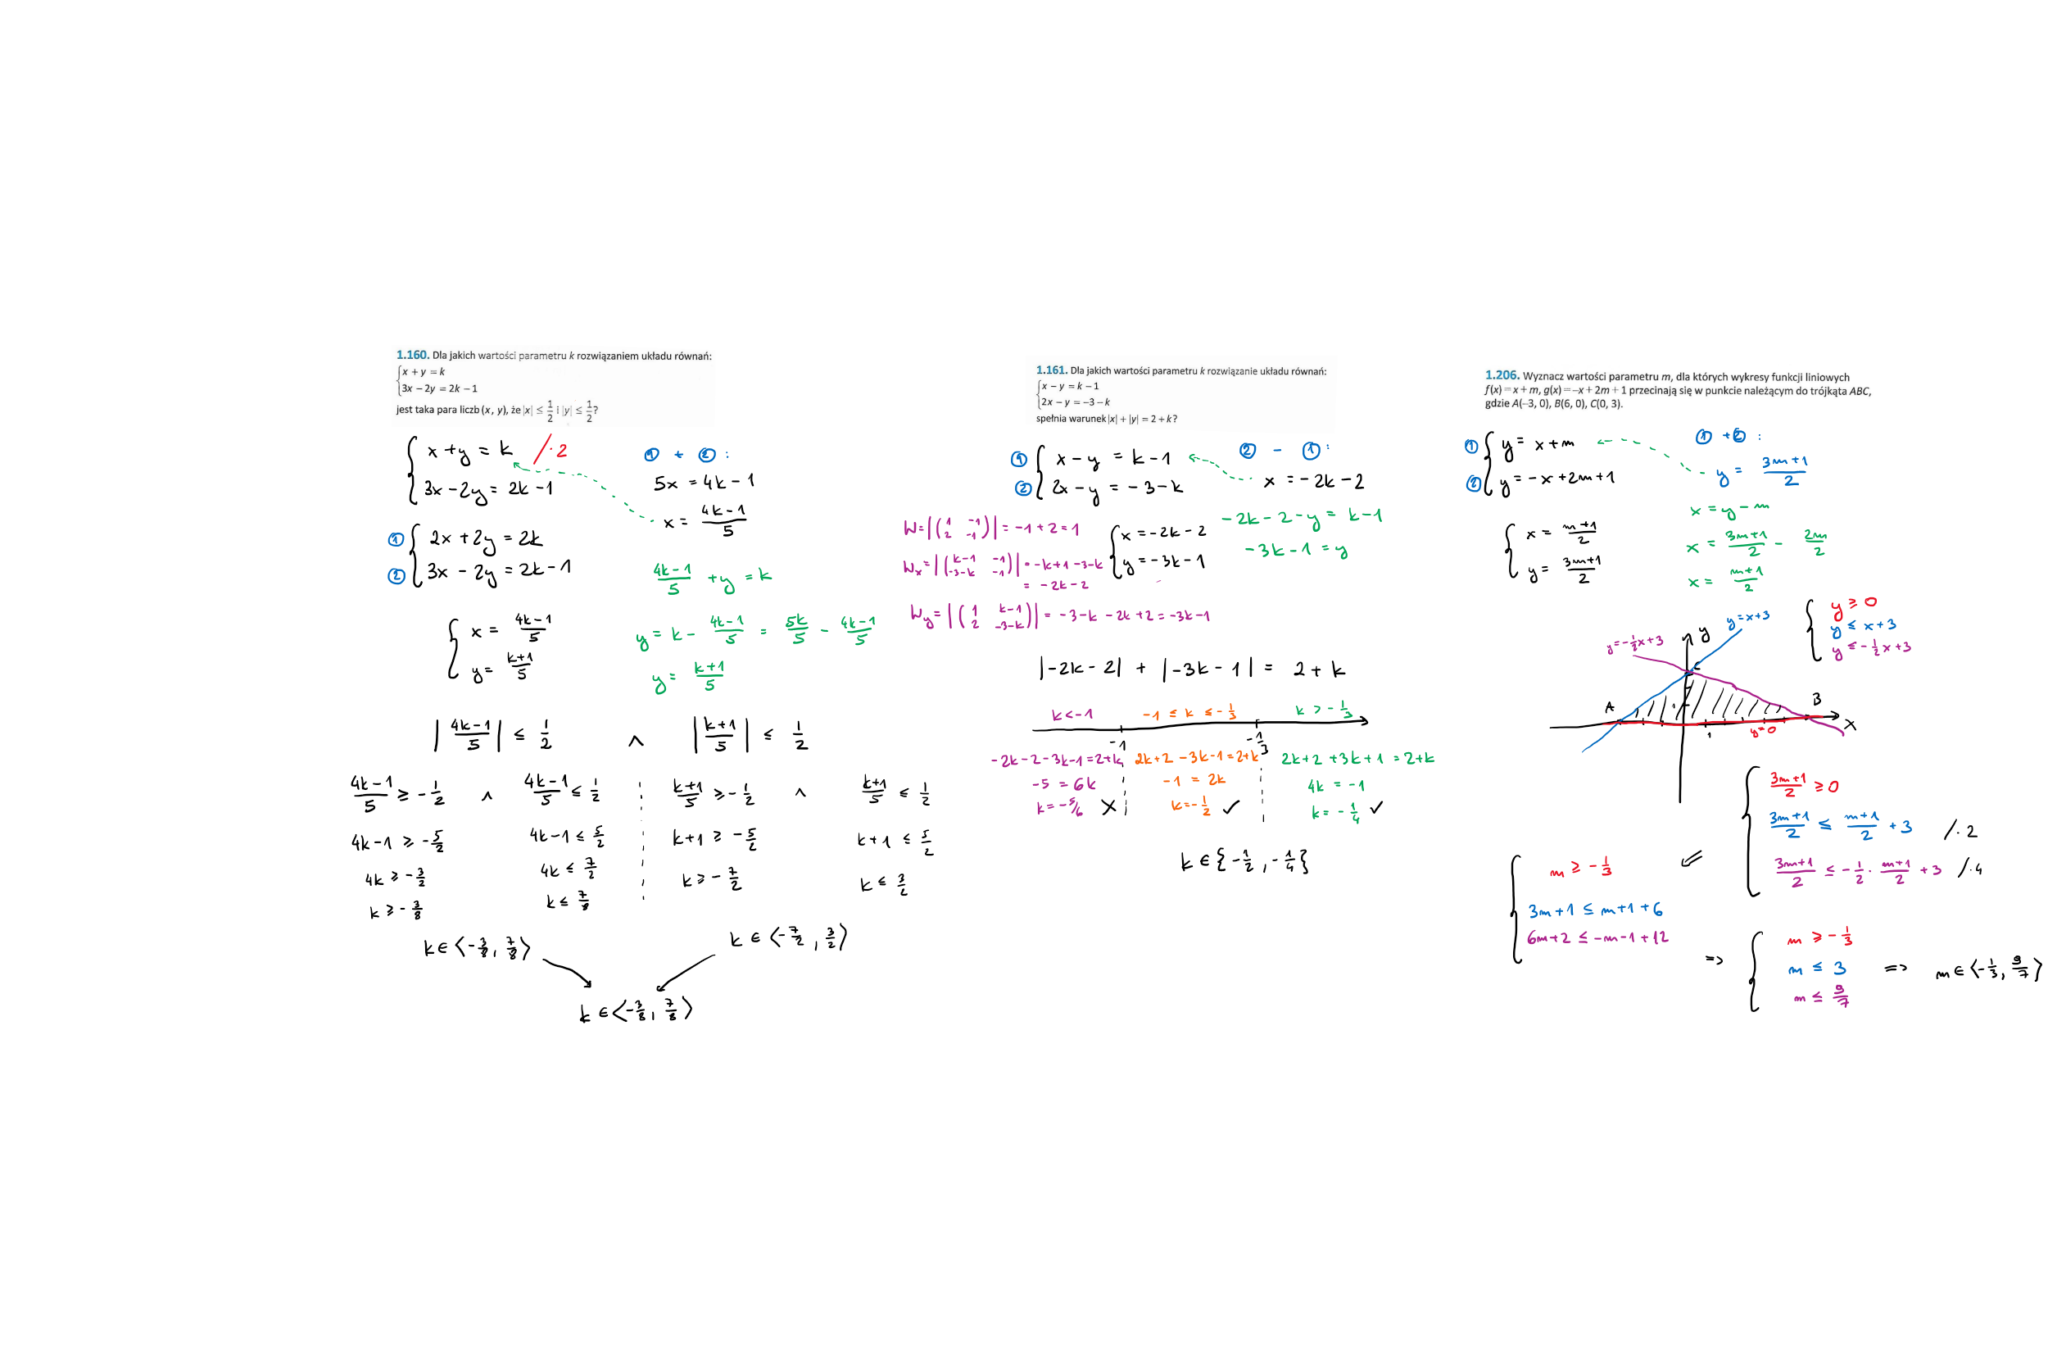 1.160. Dla jakich wartości parametru k rozwiązaniem układu równań:
{x + y = k
{3x − 2y = 2k − 1
jest taka para liczb (x, y), że |x| ≤ 1/2 i |y| ≤ 1/2?
{x + y = k /·2
{3x − 2y = 2k − 1
① + ②:
5x = 4k − 1
x = (4k−1)/5
① {2x + 2y = 2k
② {3x − 2y = 2k − 1
(4k−1)/5 + y = k
y = k − (4k−1)/5 = 5k/5 − (4k−1)/5
y = (k+1)/5
{x = (4k−1)/5
{y = (k+1)/5
|(4k−1)/5| ≤ 1/2 ∧ |(k+1)/5| ≤ 1/2
(4k−1)/5 ≥ −1/2 ∧ (4k−1)/5 ≤ 1/2 (k+1)/5 ≥ −1/2 ∧ (k+1)/5 ≤ 1/2
4k−1 ≥ −5/2 4k−1 ≤ 5/2 k+1 ≥ −5/2 k+1 ≤ 5/2
4k ≥ −3/2 4k ≤ 7/2 k ≥ −7/2 k ≤ 3/2
k ≥ −3/8 k ≤ 7/8
k ∈ ⟨−3/8, 7/8⟩ k ∈ ⟨−7/2, 3/2⟩
k ∈ ⟨−3/8, 7/8⟩
1.161. Dla jakich wartości parametru k rozwiązanie układu równań:
{x − y = k − 1
{2x − y = −3 − k
spełnia warunek |x| + |y| = 2 + k?
① {x − y = k − 1
② {2x − y = −3 − k
② − ①:
x = −2k − 2
−2k − 2 − y = k − 1
−3k − 1 = y
W = |(1 −1
2 −1)| = −1 + 2 = 1
Wx = |(k−1 −1
−3−k −1)| = −k+1 −3−k
= −2k − 2
Wy = |(1 k−1
2 −3−k)| = −3−k −2k +2 = −3k−1
{x = −2k − 2
{y = −3k − 1
|−2k − 2| + |−3k − 1| = 2 + k
k < −1 −1 ≤ k ≤ −1/3 k > −1/3
−1 −1/3
−2k−2−3k−1=2+k 2k+2 −3k−1=2+k 2k+2 +3k+1 = 2+k
−5 = 6k −1 = 2k 4k = −1
k = −5/6 X k = −1/2 ✓ k = −1/4 ✓
k ∈ {−1/2, −1/4}
1.206. Wyznacz wartości parametru m, dla których wykresy funkcji liniowych
f(x) = x + m, g(x) = −x + 2m + 1 przecinają się w punkcie należącym do trójkąta ABC,
gdzie A(−3, 0), B(6, 0), C(0, 3).
① {y = x + m
② {y = −x + 2m + 1
① + ②:
y = (3m+1)/2
x = y − m
x = (3m+1)/2 − 2m/2
x = (m+1)/2
{x = (m+1)/2
{y = (3m+1)/2
{y ≥ 0
{y ≤ x + 3
{y ≤ −1/2x + 3
y = −1/2x + 3
y
y = x + 3
C
A
B
1
y=0
x
{(3m+1)/2 ≥ 0
{(3m+1)/2 ≤ (m+1)/2 + 3 /·2
{(3m+1)/2 ≤ −1/2 · (m+1)/2 + 3 /·4
⇐
{m ≥ −1/3
{3m+1 ≤ m+1+6
{6m+2 ≤ −m−1+12
=>
{m ≥ −1/3
{m ≤ 3
{m ≤ 9/7
=> m ∈ ⟨−1/3, 9/7⟩